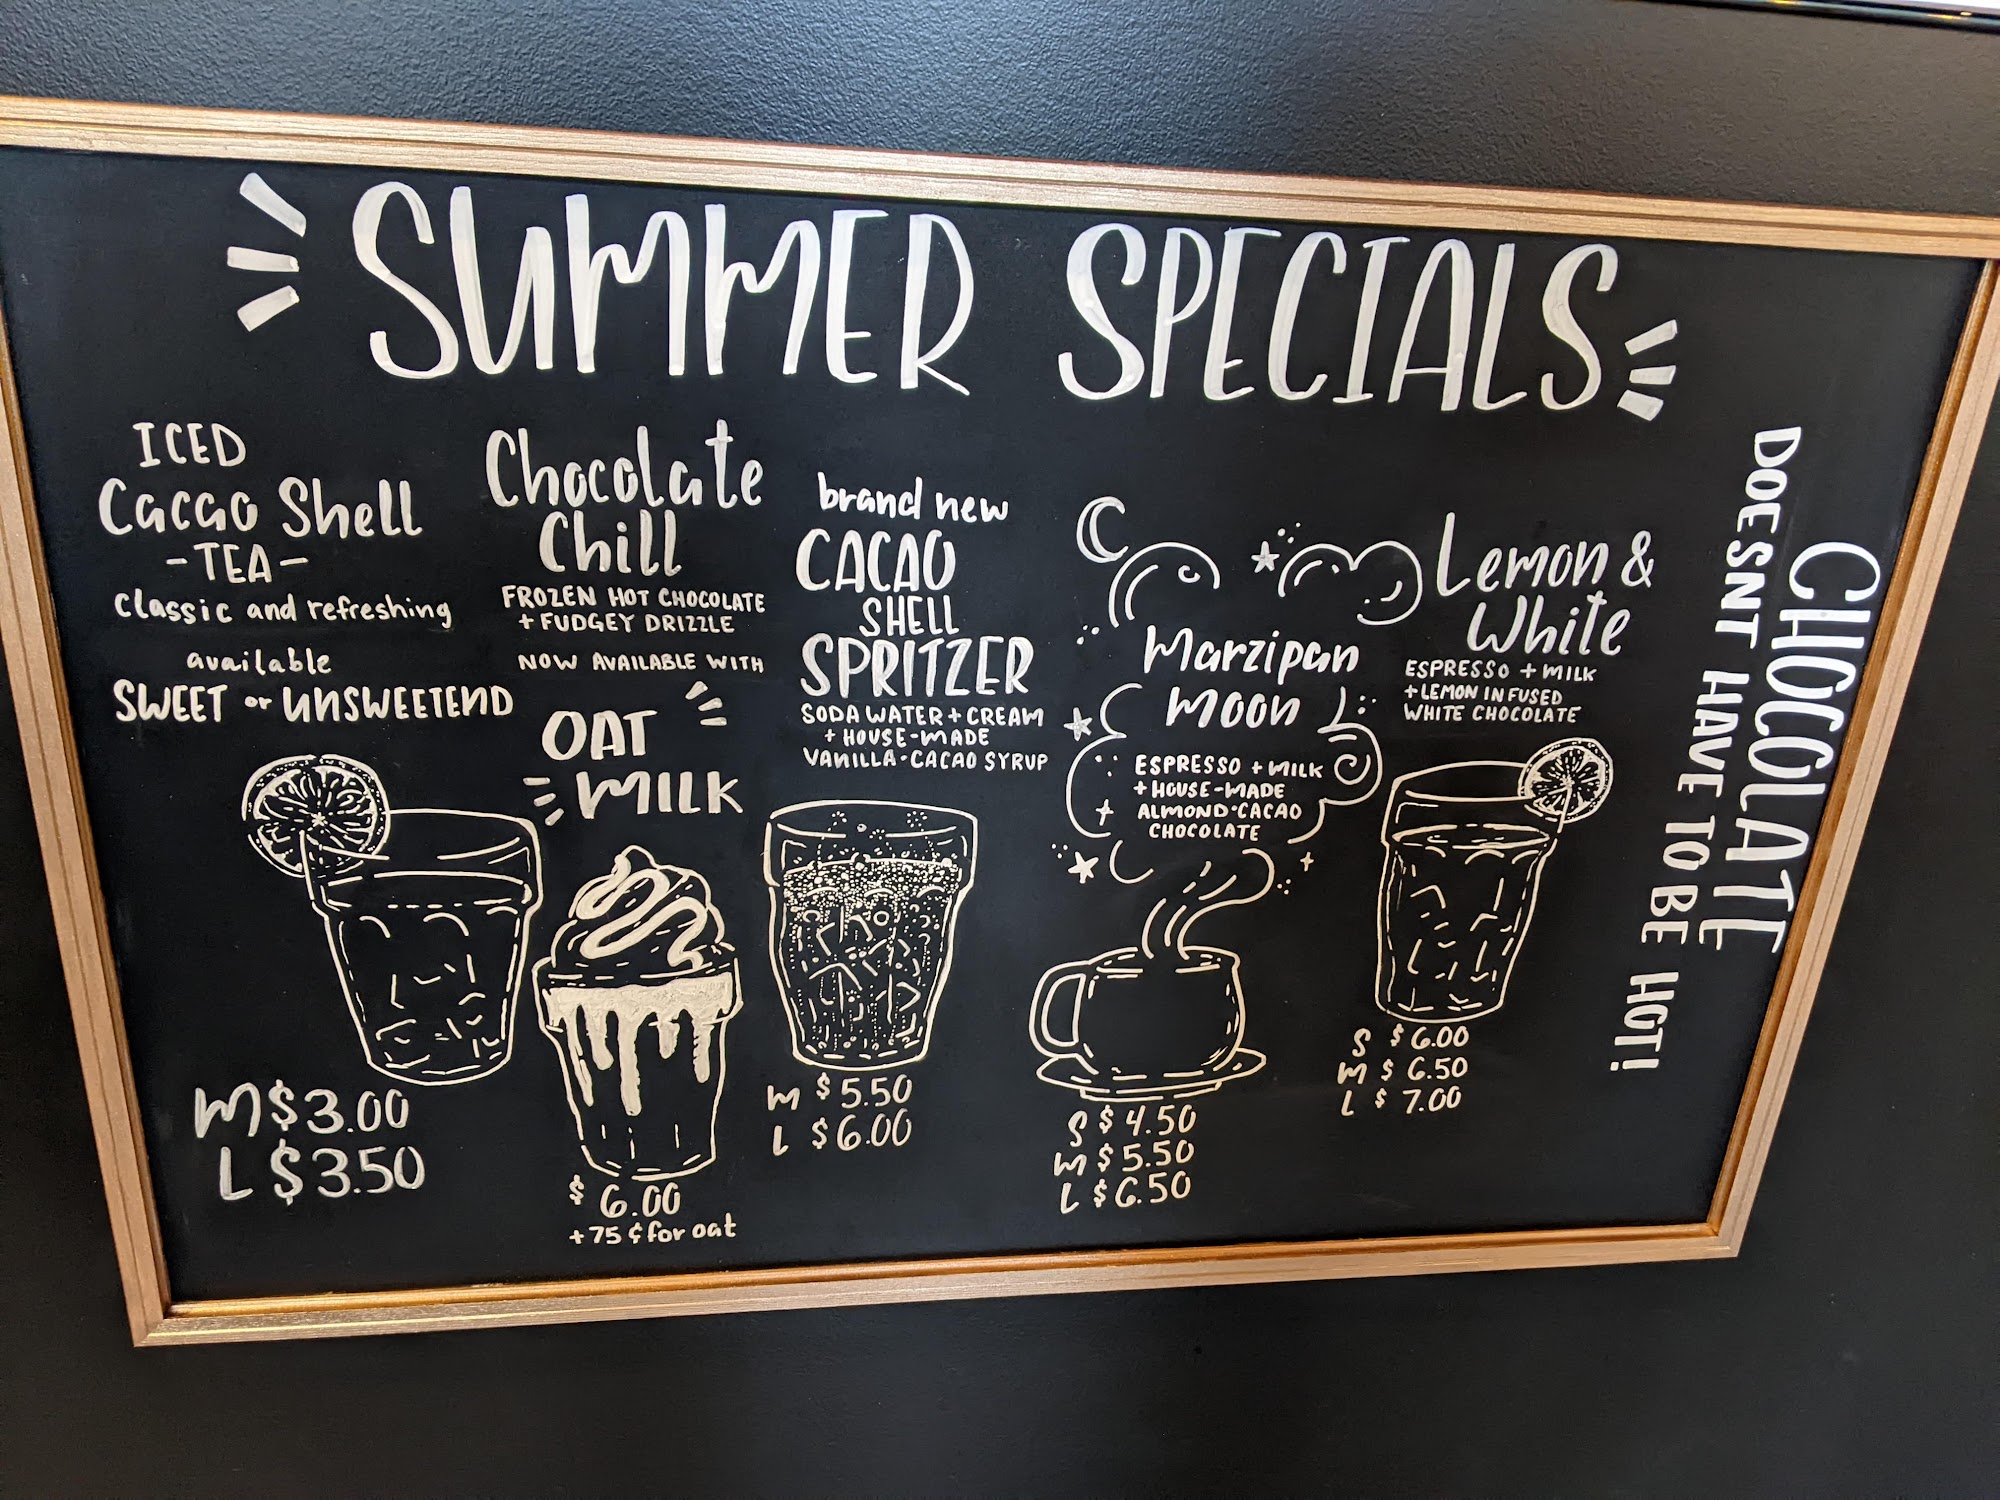 SUMMER SPECIALS
ICED
Cacao Shell
-TEA-
classic and refreshing
available
SWEET or UNSWEETEND
M $3.00
L $3.50
Chocolate
Chill
FROZEN HOT CHOCOLATE
+ FUDGEY DRIZZLE
NOW AVAILABLE WITH
OAT
MILK
$6.00
+75¢ for oat
brand new
CACAO
SHELL
SPRITZER
SODA WATER + CREAM
+ HOUSE-MADE
VANILLA·CACAO SYRUP
M $5.50
L $6.00
Marzipan
Moon
ESPRESSO + MILK
+ HOUSE-MADE
ALMOND·CACAO
CHOCOLATE
S $4.50
M $5.50
L $6.50
Lemon &
White
ESPRESSO + MILK
+ LEMON INFUSED
WHITE CHOCOLATE
S $6.00
M $6.50
L $7.00
CHOCOLATE
DOESNT HAVE TO BE HOT!